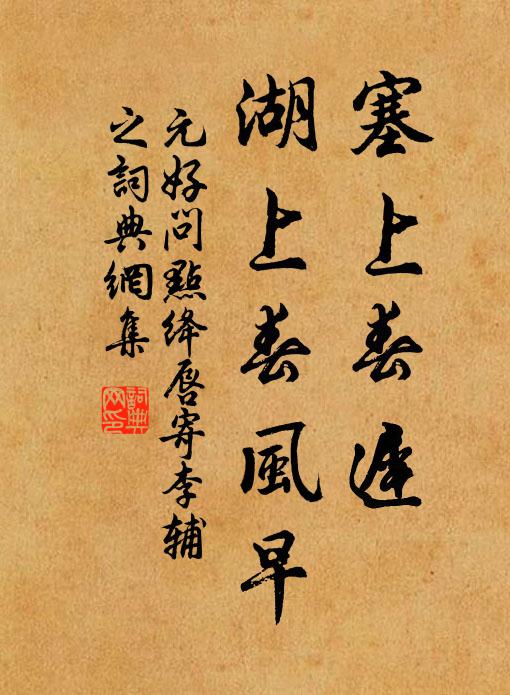 塞上春遲
湖上春風早
元好問點絳唇寄李輔
之詞典網集
詞典
网印